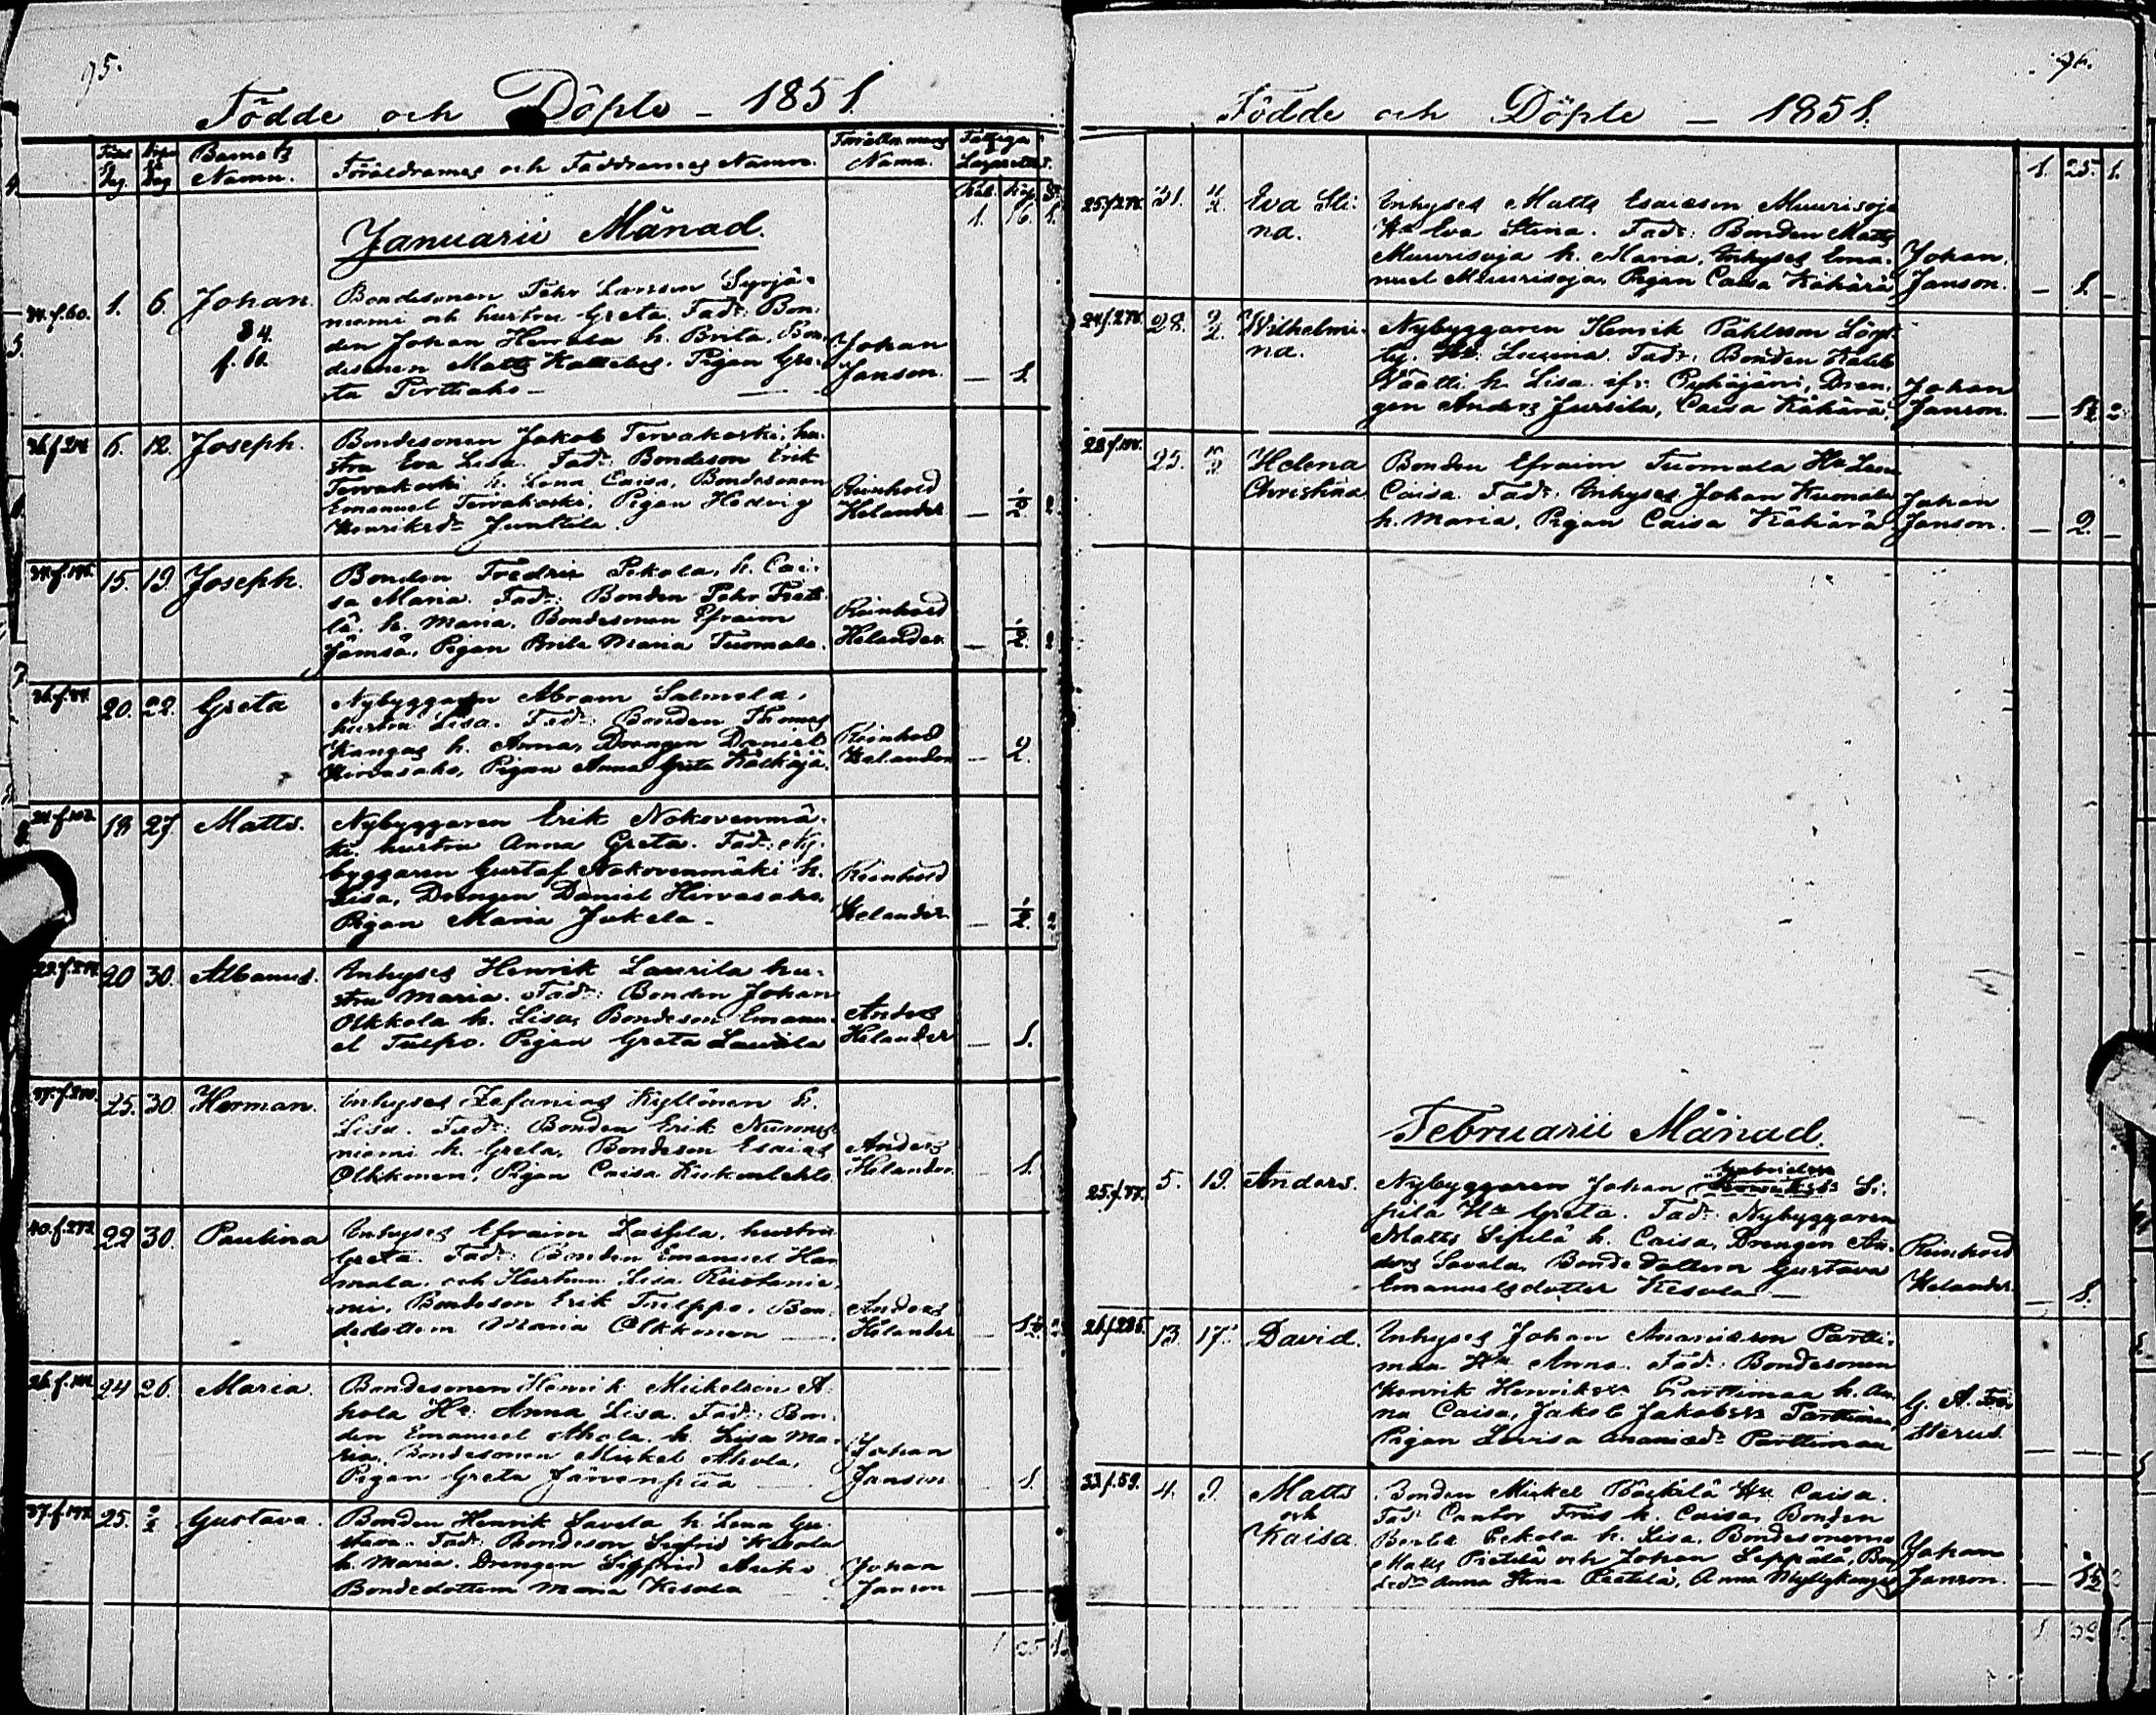 95.
Födde och Döpte - 1851.
Födde Dag
Döpte Dag
Barnets Namn.
Föräldrarnes och Faddrarnes Namn.
Förrättn. mans Namn.
Fattiga
Lazarettet.
Rub. Kop.
1. 16. 1.
Januarii Månad.
34. f. 60. 1. 6. Johan.
34.
f. 60.
Bondesonen Pehr Larsson Syrjä-
niemi och hustru Greta. Fadd: Bon-
den Johan Herrala h. Brita, Bon-
desonen Matts Kattelus. Pigan Gre-
ta Pirttiaho -
Johan
Janson.
— 1.
6. 12. Joseph.
Bondesonen Jakob Tervakoski, hu-
stru Eva Lisa. Fadd: Bondeson Erik
Tervakoski h. Lena Caisa, Bondesonen
Emanuel Tervakoski, Pigan Hedvig
Henriksdr Junttila.
Reinhold
Helander
— 1/2.
15. 19. Joseph.
Bonden Fredric Pekola, h. Cai-
sa Maria. Fadd: Bonden Pehr Pieti-
lä h. Maria. Bondesonen Efraim
Jämsä, Pigan Brita Maria Tuomala.
Reinhold
Helander.
— 1/2.
20. 22. Greta
Nybyggaren Abram Salmela,
hustru Lisa. Fadd: Bonden Thomas
Kangas h. Anna, Drengen Daniel
Hirvasaho, Pigan Anna Greta
Reinhold
Helander
— 2.
18 27 Matts.
Nybyggaren Erik Nokovenmä-
ki. hustru Anna Greta. Fadd: Ny-
byggaren Gustaf Nokovenmäki h.
Lisa, Drengen Daniel Hirvasaho,
Pigan Maria Jukola -
Reinhold
Helander.
— 1/2.
20 30. Albanus.
Inhyses Henrik Laurila hu-
stru Maria. Fadd: Bonden Johan
Olkkola h. Lisa, Bondeson Emanu-
el Tulpo. Pigan Greta Laurila
Anders
Helander
— 1.
25. 30 Herman.
Inhyses Zefanias Kyllönen h.
Lisa. Fadd: Bonden Erik Nurmes-
niemi h. Greta, Bondeson Esaias
Olkkonen, Pigan Caisa
Anders
Helander.
1.
40. f. 272. 22 30. Paulina
Inhyses Efraim h. hustru
Greta. Fadd: Bonden Emanuel
och Hustrun Lisa
Bondeson Erik Bon-
dedottern Maria Olkkonen
Anders
Helander
24 26. Maria.
Bondesonen Henrik Mickelsson A-
hola Hu: Anna Lisa. Fadd: Bon-
den Emanuel Ahola. h. Lisa Ma-
ria, Bondesonen Mickel Ahola,
Pigan Greta Järvenpää
Johan
Janson
1.
25. 2/2 Gustava.
Bonden Henrik Savela h. Lena Gu-
stava. Fadd: Bondeson Sigfrid Kesola
h. Maria. Drengen Sigfrid
Bondedottern Maria Kesola
Johan
Janson
1 25 1.
96.
Födde och Döpte — 1851.
1. 25. 1.
31. 4/2. Eva Sti-
na.
Inhyses Matts Esaiason Muurisoja
Hu Eva Stina. Fadd: Bonden Matts
Muurisoja h. Maria, Inhyses Ema-
nuel Muurisoja, Pigan Caisa Kähärä
Johan.
Janson.
— 1. —
28. 9/2. Wilhelmi-
na.
Nybyggaren Henrik Påhlsson
Hu: Lucina. Fadd: Bonden Kaleb
Väätti h. Lisa ifr. Pyhäjärvi, Dren-
gen Anders Jussila, Caisa Kähärä.
Johan
Janson.
25. Helena
Christina
Bonden Efraim Tuomala Hu Lena
Caisa. Fadd: Inhyses Johan
h. Maria, Pigan Caisa Kähärä
Johan
Janson.
— 2. —
Februarii Månad.
25. f. 77. 5. 19. Anders.
Nybyggaren Johan Gabrielsson Si-
pilä Hu Greta. Fadd: Nybyggaren
Matts Sipilä h. Caisa, Drengen An-
ders Savela, Bondedottern Gustava
Emanuelsdotter Kesola —
Reinhold
Helander.
— 1.
13. 17. David.
Inhyses Johan Ananiasson Partti-
maa Hu Anna. Fadd: Bondesonen
Henrik Henriksson Parttimaa h. An-
na Caisa, Jakob Jakobsson Parttimaa,
Pigan Lovisa Ananiædr Parttimaa
G. A.
— —
33. f. 59. 4. 9. Matts
och
Kaisa.
Bonden Mickel Hu Caisa.
Fadd: Cantor h. Caisa, Bonden
Pekola h. Lisa, Bondesönerne
Matts Pietilä och Johan Leppälä, Bon-
dedr Anna Stina Pietilä, Anna Myllykangas
Johan
Janson.